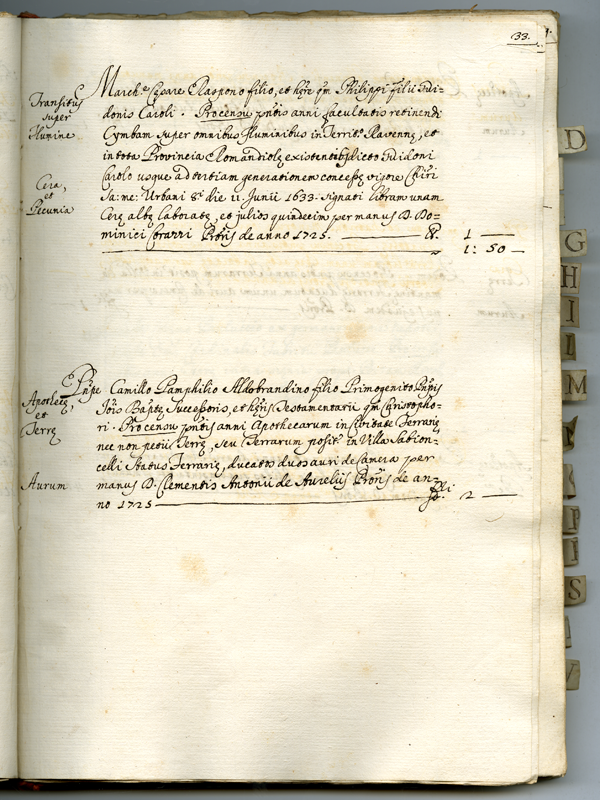 33.
Transitus
super
flumine
Cera,
et
Pecunia
March.e Cesare Rasponio filio, et hęre qm Philippi filii Gui-
donis Caroli. Pro censu pntis anni facultatis retinendi
Cymbam super omnibus fluminibus in Territo Ravennę, et
in tota Provincia Romandiolę existentib dicto Guidoni
Carolo usque ad tertiam generationem concessę vigore Chiri
Sa: me: Urbani 8i die 11. Junii 1633. signati libram unam
Cerę albę laboratę, et julios quindecim per manus D. Do-
minici Corazzi Pbris de anno 1725. 1
1: 50
Apothecę,
et
Terrę
Aurum
Pnpe Camillo Pamphilio Aldobrandino filio Primogenito Pnpis
Jois Baptę successoris, et hęris Testamentarii qm Christopho-
ri. Pro censu pntis anni Apothecarum in Civitate Ferrarię
nec non petii Terrę, seu Terrarum posit. in Villa Sabion-
celli Status Ferrarię, ducatos duos auri de Camera per
manus D. Clementis Antonii de Aureliis Pbris de an-
no 1725 2
D
G
H
I
L
M
P
S
V